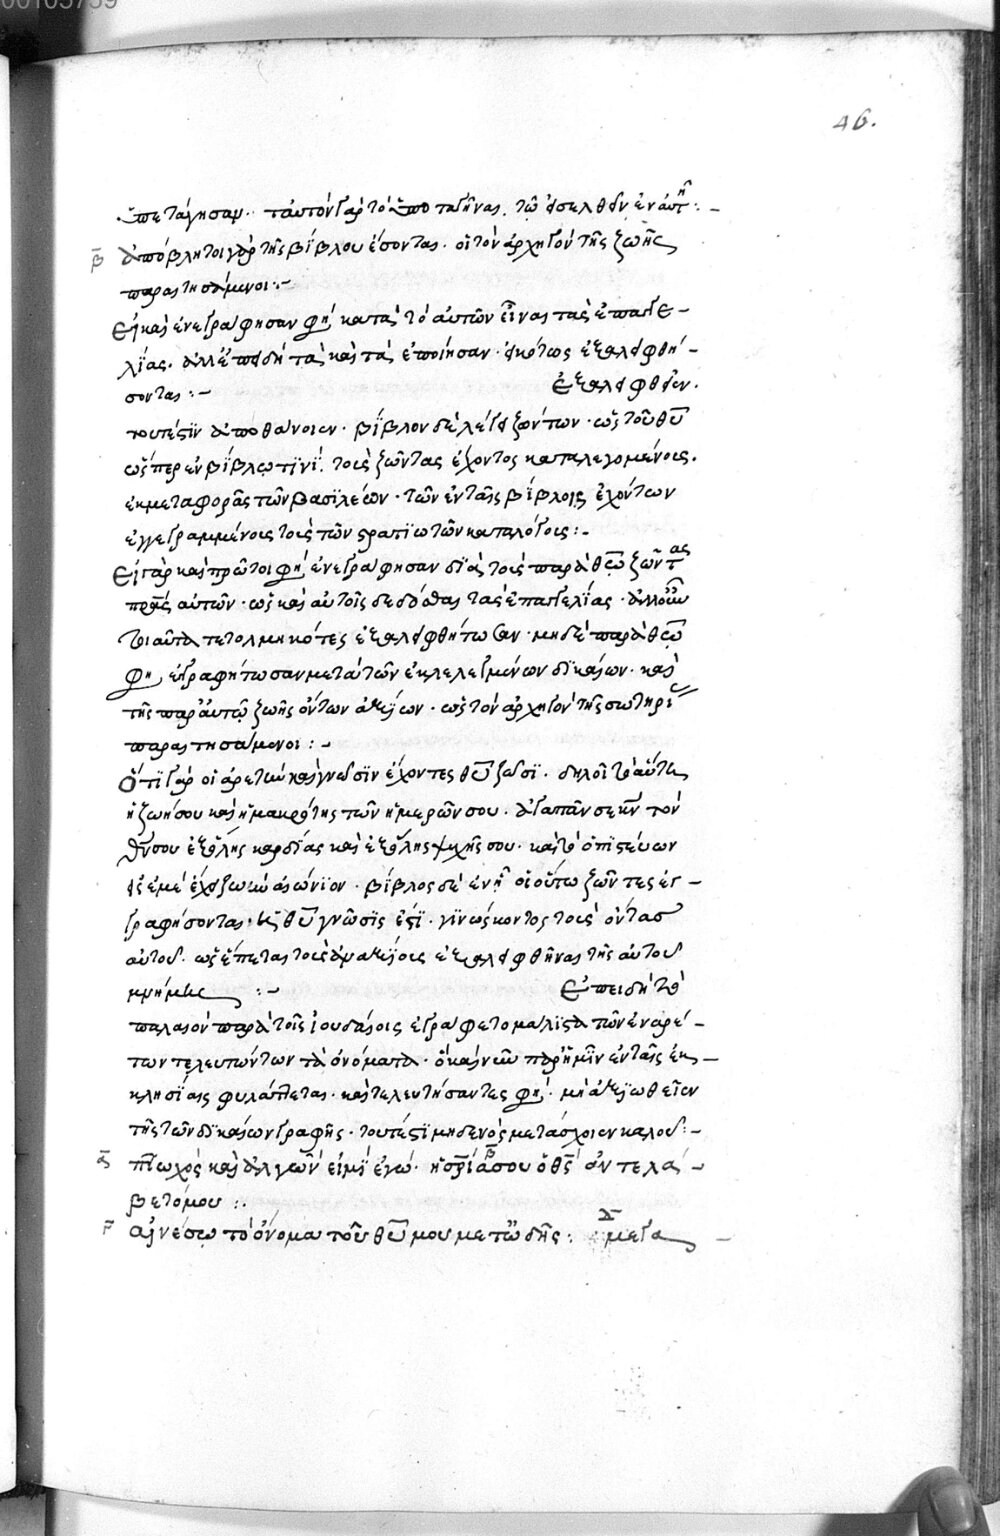 00105759
46.
ὑπετάγησαν· ταυτὸν γὰρ τὸ ὑποταγῆναι τῷ εἰσελθεῖν ἐν αὐτῇ :-
β ἀπόβλητοι γὰρ τῆς βίβλου ἔσονται. οἱ τὸν ἀρχηγὸν τῆς ζωῆς
παραιτησάμενοι :-
Εἰ καὶ ἐνεγράφησαν φη κατὰ τὸ αὐτῶν εἶναι τὰς ἐπαγγε-
λίας. ἀλλ' ἐπειδὴ τὰ καὶ τὰ ἐποίησαν· εἰκότως ἐξαλειφθή-
σονται :- Ἐξαλειφθεῖεν.
τουτέστιν ἀποθάνοιεν· βίβλον δὲ λέγει ζώντων· ὡς τοῦ θυ
ὥσπερ ἐν βίβλῳ τινί τοὺς ζῶντας ἔχοντος καταλεγομένους.
ἐκ μεταφορᾶς τῶν βασιλέων· τῶν ἐν ταῖς βίβλοις ἐχόντων
ἐγγεγραμμένους τοὺς τῶν στρατιωτῶν καταλόγους :-
Εἰ γὰρ καὶ πρῶτοι φη ἐνεγράφησαν διὰ τοὺς παρὰ θω ζῶντας
πρας αὐτῶν· ὡς καὶ αὐτοῖς δεδόσθαι τὰς ἐπαγγελίας· ἀλλ' οὖν
οἱ αὐτὰ τετολμηκότες ἐξαλειφθήτωσαν· μηδὲ παρὰ θω
φη ἐγγραφήτωσαν μετὰ τῶν ἐκλελεγμένων δικαίων· καὶ
τῆς παρ' αὐτῷ ζωῆς ὄντων ἀξίων· ὡς τὸν ἀρχηγὸν τῆς σωτηρι
παραιτησάμενοι :-
Ὅτι γὰρ οἱ ἀρετὴν καὶ γνῶσιν ἔχοντες θυ ζῶσι. δηλοῖ τὸ αὕτη
ἡ ζωή σου καὶ ἡ μακρότης τῶν ἡμερῶν σου. ἀγαπᾶν σε κν τὸν
θν σου ἐξ ὅλης καρδίας καὶ ἐξ ὅλης ψυχῆς σου. καὶ τὸ ὁ πιστεύων
εἰς ἐμὲ ἔχει ζωὴν αἰώνιον. βίβλος δὲ ἐν ᾗ οἱ οὕτω ζῶντες ἐγ-
γραφήσονται· ἡ θυ γνῶσις ἐστι· γινώσκοντος τοὺς ὄντας
αὐτοῦ. ὡς ἕπεται τοὺς ἀναξίους ἐξαλειφθῆναι τῆς αὐτοῦ
μνήμης :- Ἐπειδὴ τὸ
παλαιὸν παρὰ τοῖς ἰουδαίοις ἐγράφετο μάλιστα τῶν ἐναρέ-
των τελευτώντων τὰ ὀνόματα· ὃ καὶ νῦν παρ' ἡμῖν ἐν ταῖς ἐκ-
κλησίαις φυλάττεται. καὶ τελευτήσαντες φη. μὴ ἀξιωθεῖεν
τῆς τῶν δικαίων γραφῆς· τουτέστι μηδενὸς μετάσχοιεν καλοῦ :-
α πτωχὸς καὶ ἀλγῶν εἰμὶ ἐγώ· ἡ σρία σου ὁ θς ἀντελά-
βετό μου :.
Γ αἰνέσω τὸ ὄνομα τοῦ θυ μου μετ' ᾠδῆς : μεγα